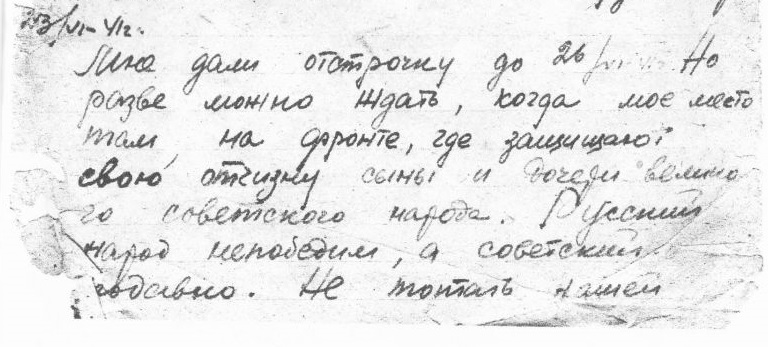 23/VI-41г.
Мне дали отстрочку до 26/VI Но
разве можно ждать, когда мое место
там, на фронте, где защищают
свою отчизну сыны и дочери велико
го советского народа. Русский
народ непобедим, а советский
подавно. Не топтать нашей